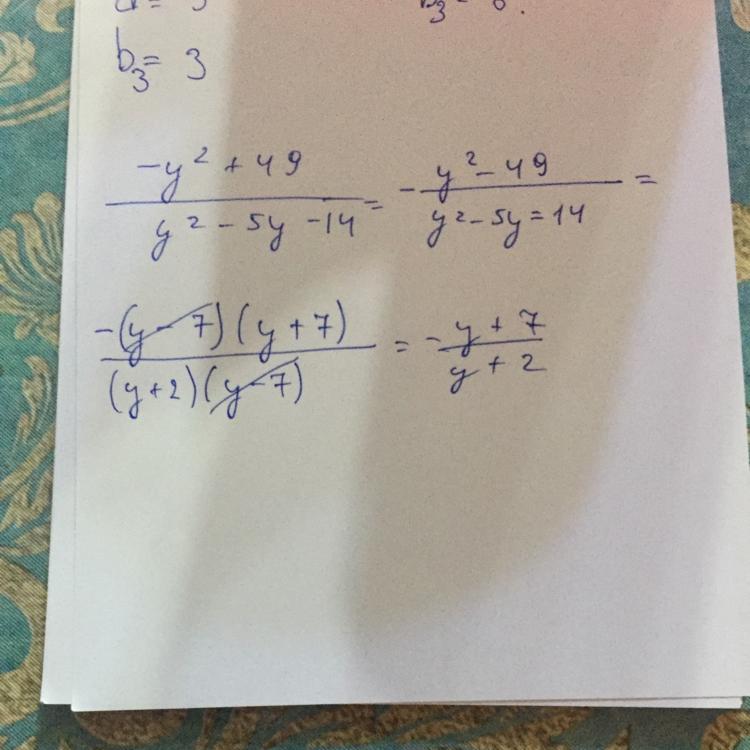 b₃ = 3
(-y² + 49)/(y² - 5y - 14) = -(y² - 49)/(y² - 5y = 14) =
(-(y - 7)(y + 7))/((y + 2)(y - 7)) = -(y + 7)/(y + 2)